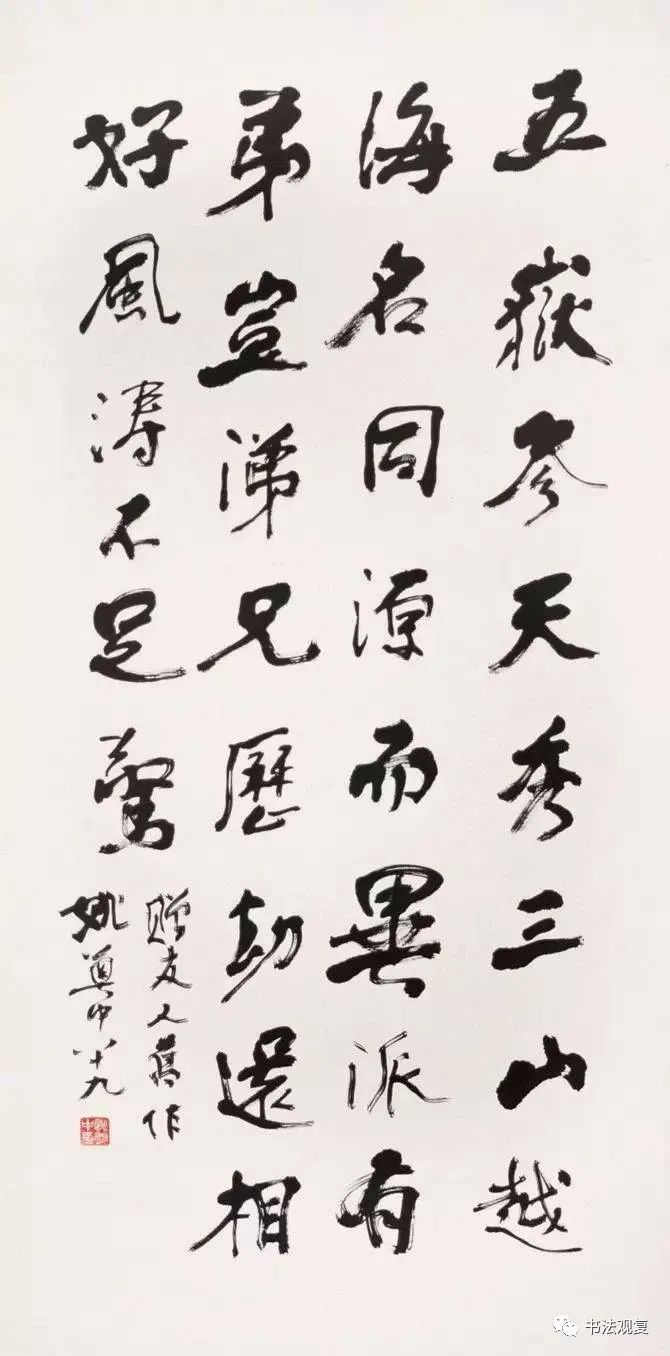 五嶽參天秀三山越
海名同源而異派有
弟豈兄歷劫還相
好風濤不足驚
贈友人舊作
姚奠中八十九
书法观复